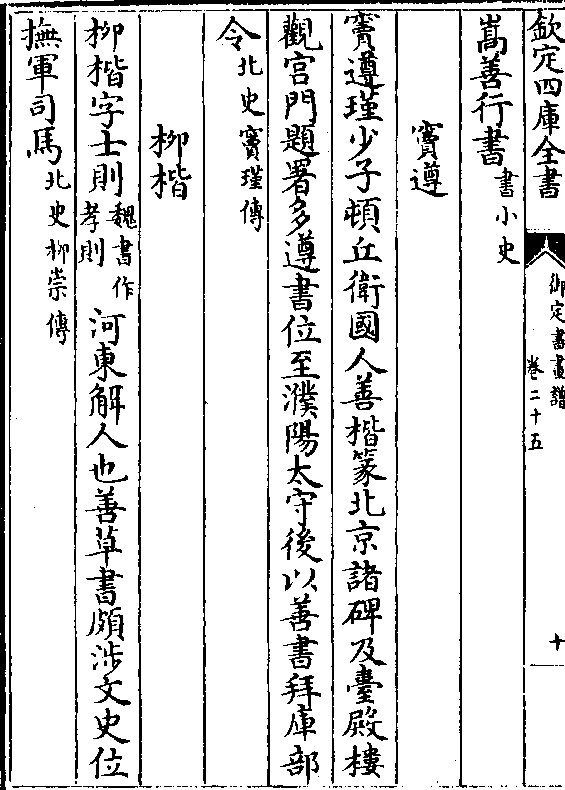 欽定四庫全書
御定書畫譜
卷二十五
十
嵩善行書書小史
竇遵
竇遵瑾少子頓丘衛國人善楷篆北京諸碑及臺殿樓
觀宮門題署多遵書位至濮陽太守後以善書拜庫部
令北史竇瑾傳
柳楷
柳楷字士則魏書作孝則河東解人也善草書頗涉文史位
撫軍司馬北史柳崇傳